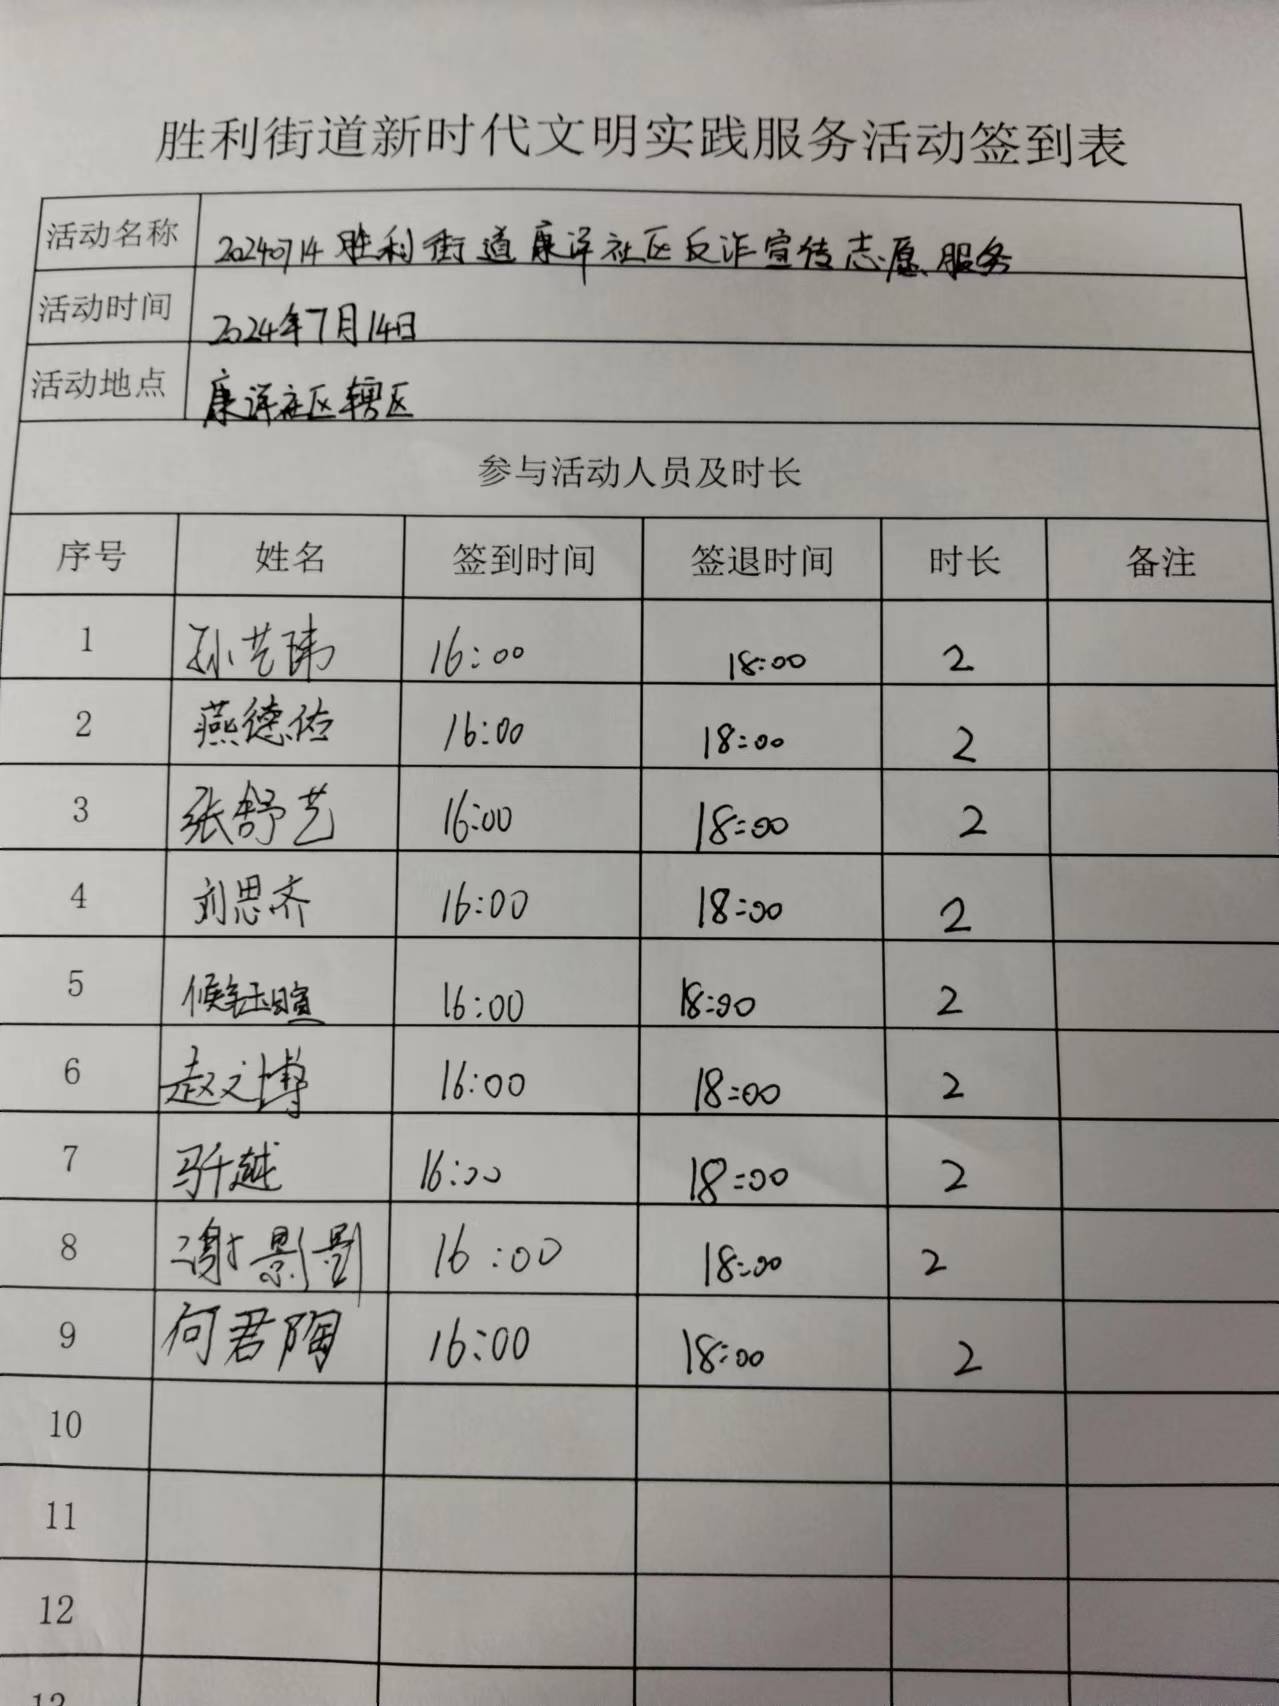 胜利街道新时代文明实践服务活动签到表
活动名称 20240714胜利街道康洋社区反诈宣传志愿服务
活动时间 2024年7月14日
活动地点 康洋社区辖区
参与活动人员及时长
序号 姓名 签到时间 签退时间 时长 备注
1 孙艺玮 16:00 18:00 2
2 燕德佑 16:00 18:00 2
3 张舒艺 16:00 18:00 2
4 刘思齐 16:00 18:00 2
5 16:00 18:00 2
6 赵文博 16:00 18:00 2
7 马千越 16:00 18:00 2
8 谢影 16:00 18:00 2
9 何君陶 16:00 18:00 2
10
11
12
13